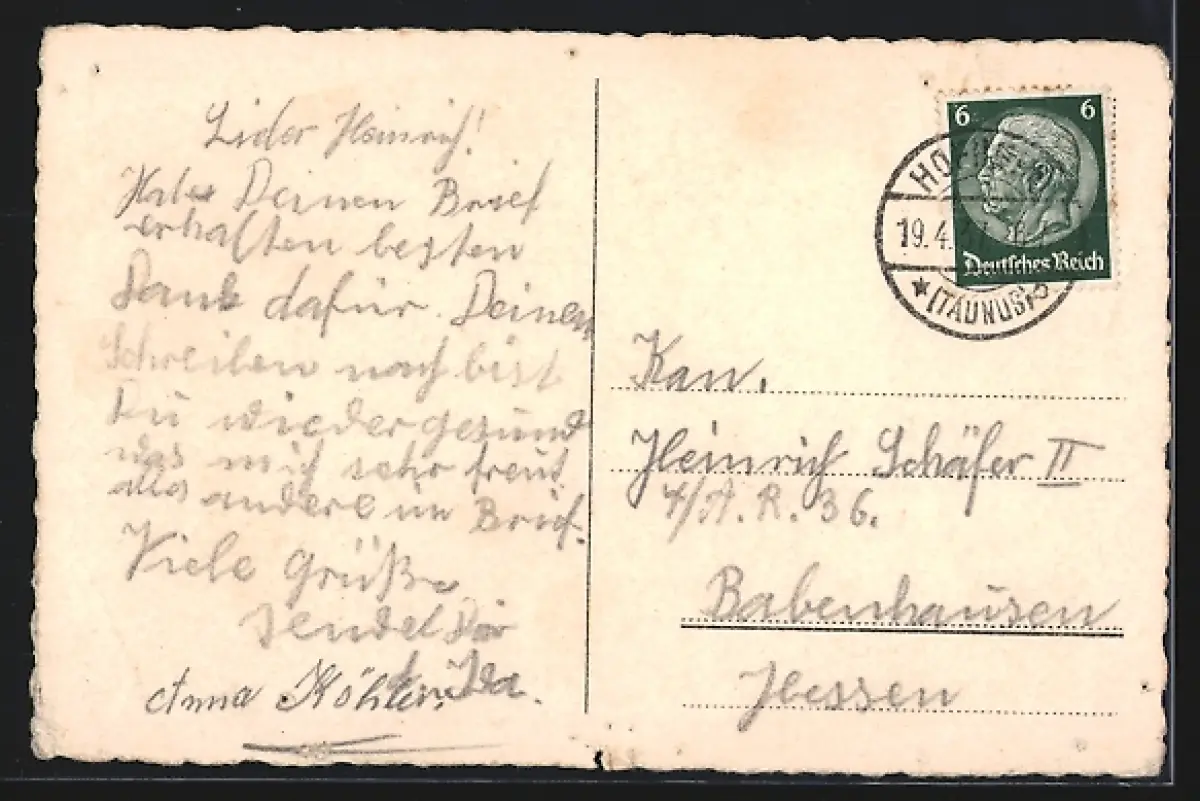 Lieber Heinrich!
Habe Deinen Brief
erhalten besten
Dank dafür. Deinem
Schreiben nach bist
Du wieder gesund
was mich sehr freut
alles andere im Brief.
Viele Grüße
sendet Dir
Anna Köhler Ida.
6 6
Deutsches Reich
19.4.
(TAUNUS)
Kan.
Heinrich Schäfer II
4/A.R. 36.
Babenhausen
Hessen